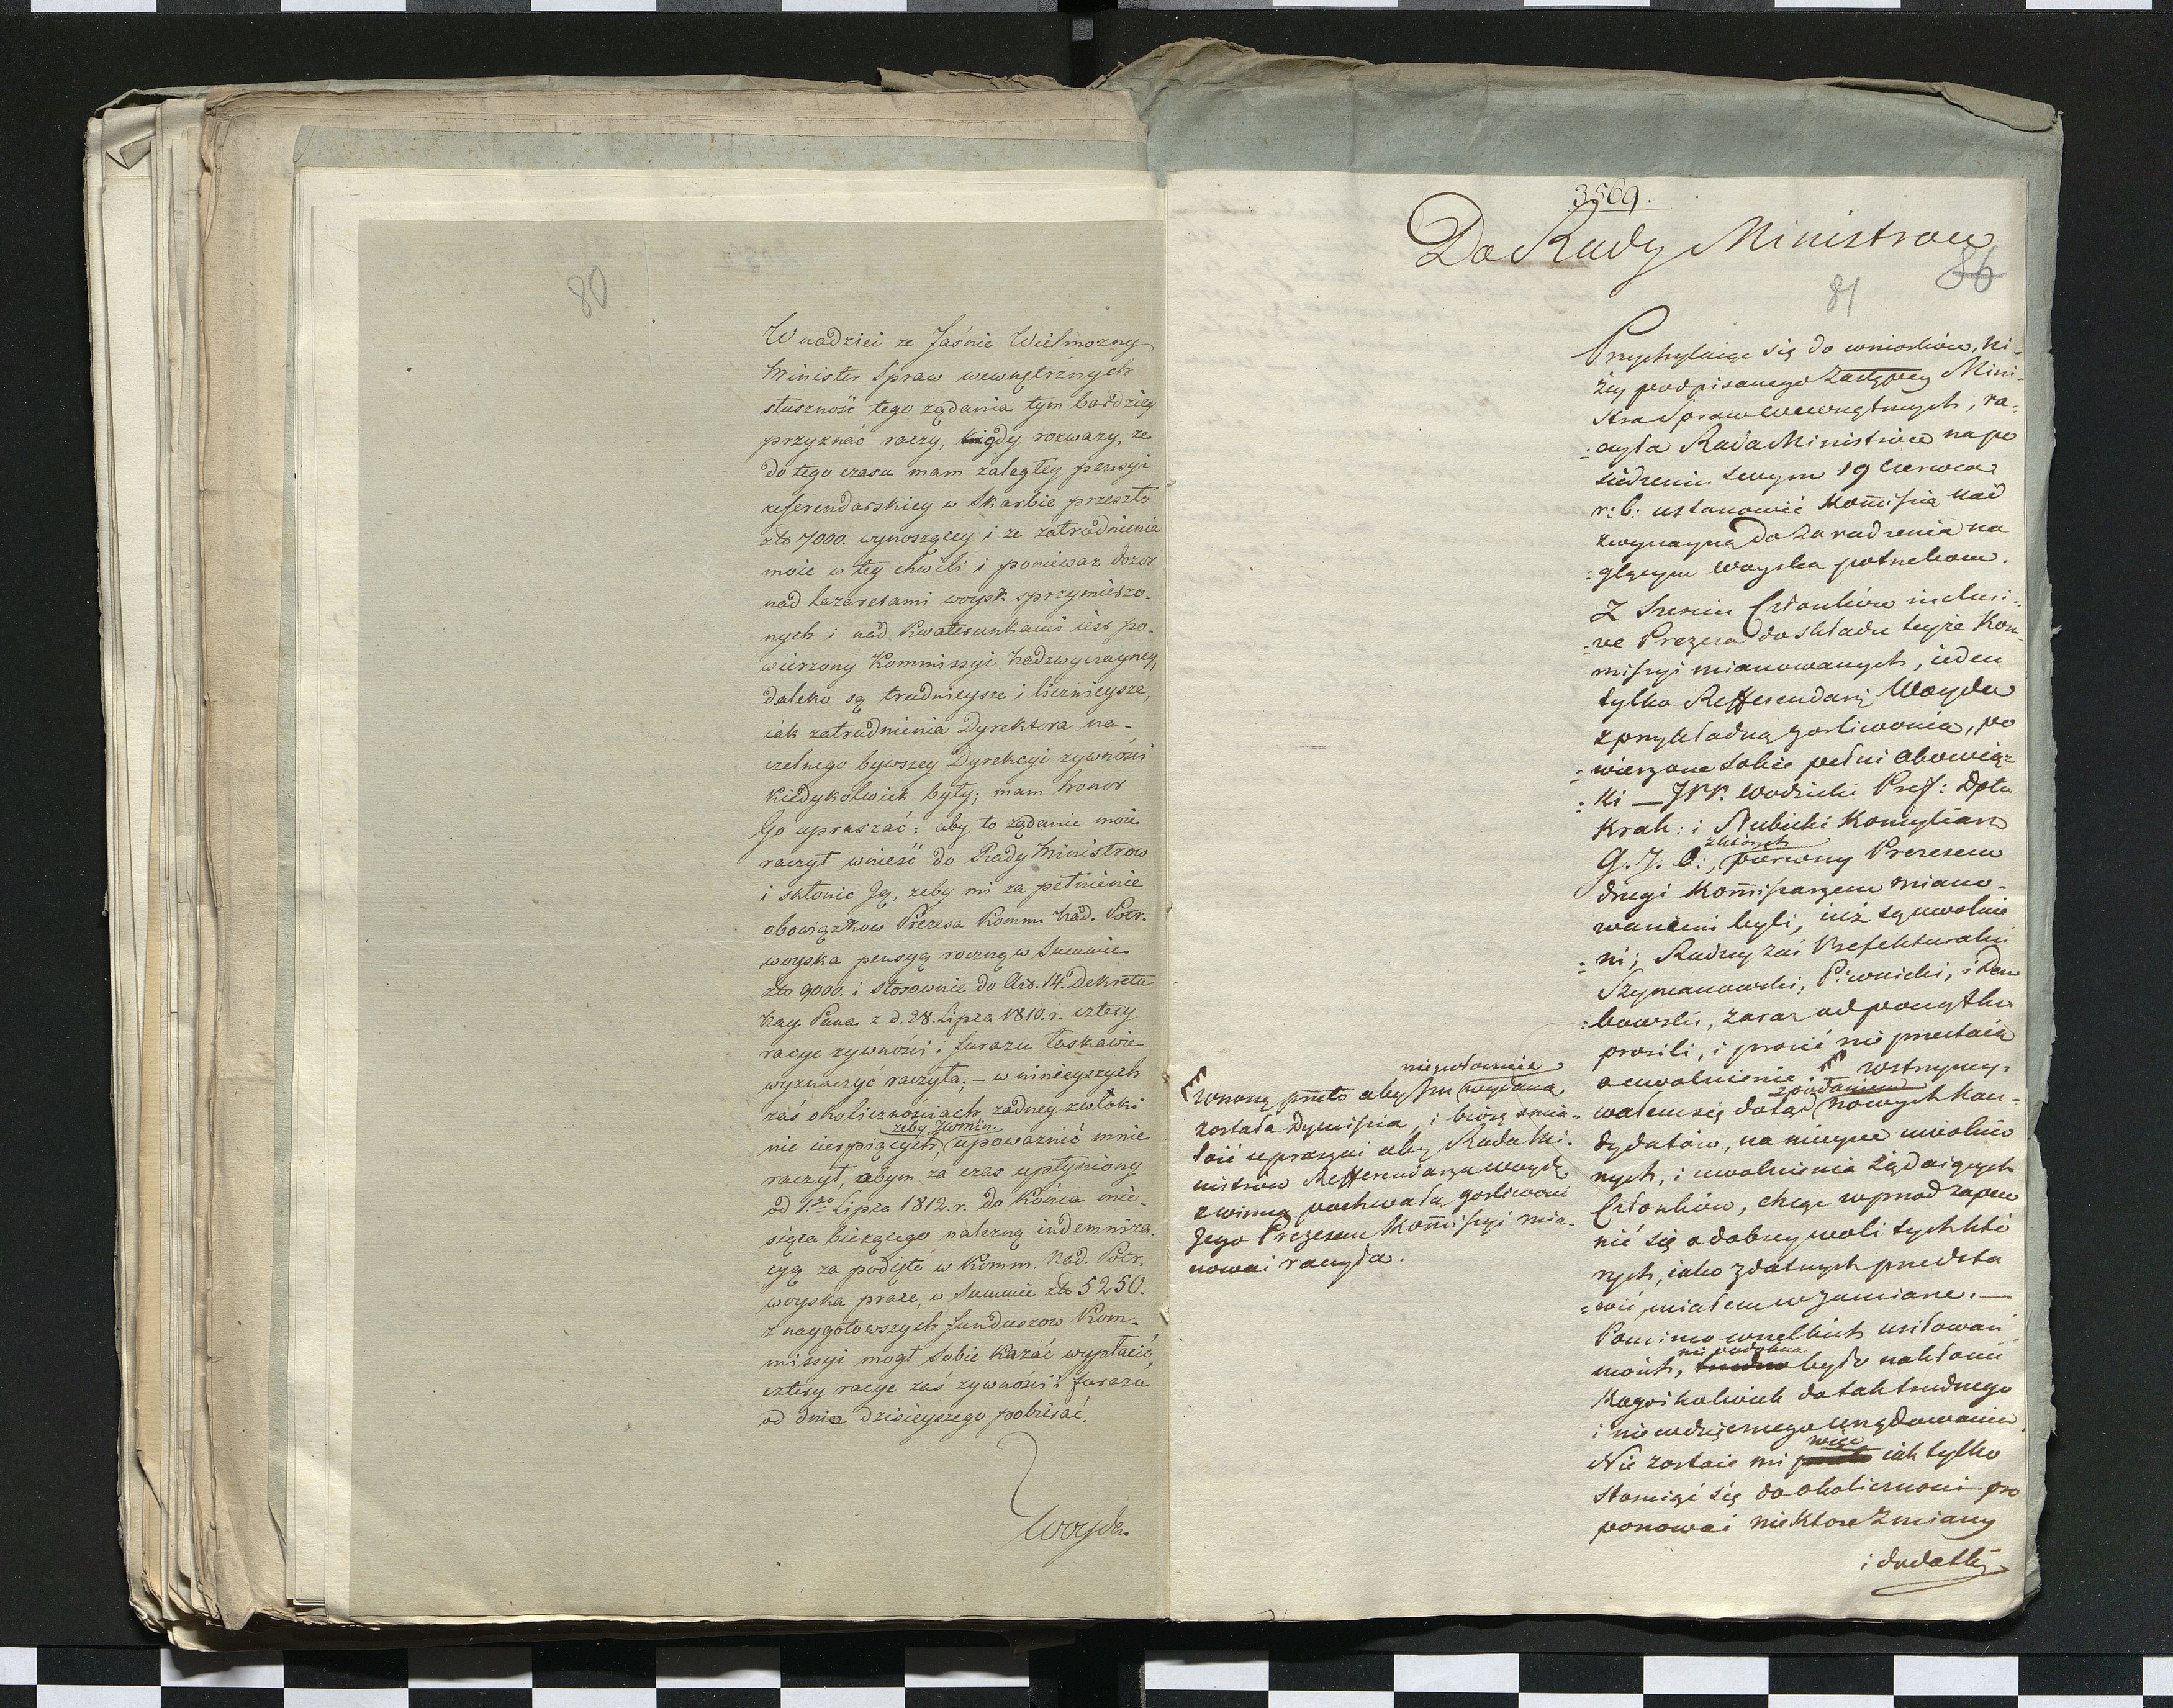 80
W nadziei ze Jaśnie Wielmozny
Minister Spraw wewnętrznych
słuszność tego ządania tym bardziey
przyznać raczy, gdy rozwazy, ze
do tego czasu mam zaległey pensyi
referendarskiey w Skarbie przeszło
złt 7000. wynoszącey i ze zatrudnienia
moie w tey chwili i poniewaz dozor
nad Lazaretami woysk sprzymierzo-
nych i nad Kwaterunkami iest po-
wierzony Kommissyi Nadzwyczayney,
daleko są trudnieysze i licznieysze,
iak zatrudnienia Dyrektora na-
czelnego bywszey Dyrekcyi zywności
kiedykolwiek były; mam honor
Go upraszać: aby to ządanie moie
raczył wnieść do Rady Ministrow
i skłonić Ją, zeby mi za pełnienie
obowiązkow Prezesa Komm. Nad. Potr.
woyska pensyą roczną w Summie
złt 9000. i stosownie do Art. 14. Dekretu
Nay. Pana z d. 28. Lipca 1810. r. cztery
racye zywności i furazu łaskawie
wyznaczyć raczyła; – w ninieyszych
zaś okolicznościach zadney zwłoki
zeby JWMin.
nie cierpiących, upowaznić mnie
raczył, abym za czas upłyniony
od 1go Lipca 1812. r. do końca mie-
siąca biezącego nalezną indemniza-
cyą za podięte w Komm. Nad. Potr.
woyska prace, w Summie złt 5250.
z naygotowszych funduszow Kom-
missyi mogł sobie kazać wypłacić,
cztery racye zaś zywności i furazu
od dnia dzisieyszego pobierać.
Woyda
3569.
Do Rady Ministrow
86
81
Przychylaiąc się do wniosków, ni-
żey podpisanego Zastępcy Mini-
stra Spraw Wewnętrznych, ra-
:czyła Rada Ministrów na po
siedzeniu swym 19 Czerwca
r: b: ustanowić Kommissią nad
zwyczayną do zaradzenia na
:glącym Woyska potrzebom.
Z Sześciu Członków inclusi-
:ve Prezesa do składu teyże Kom-
missyi mianowanych, ieden
tylko Refferendarz Woyda
z przykładną gorliwością, po
:wierzone sobie pełni obowiąz-
:ki — JPP. Wodzicki Pref: Dptu
Krak: i Nubicki Komissarz
z których
G. J. C:, pierwszy Prezesem
drugi Kommissarzem miano-
wanemi byli, iuż są uwolnie
:ni; Radzcy zaś Prefekturalni
Szymanowski, Piwnicki, i Dem
:bowski, zaraz od początku
prosili, i prosić nie przestaią
o uwolnienie. Wstrzymy-
z podaniem
wałem się dotąd nowych kan-
dydatów, na mieysce uwolnio
nych, i uwolnienia żądaiących
Członków, chcąc wprzod zapew
nić się o dobrey woli tych któ
rych, iako zdatnych przedsta
:wić, miałem w zamiarze. —
Pomimo wszelkich usiłowań
nie podobna
moich, trudno było nakłonić
kogośkolwiek do tak trudnego
i niewdzięcznego urzędowania.
więc
Nie zostaie mi przeto iak tylko
stosuiąc się do okoliczności pro
ponować niektóre zmiany
i dodatki
niezwłocznie
Wnoszę przeto aby Im wydana
została Dymissia, i biorę śmia-
łość upraszać aby Rada Mi-
nistrow Refferendarza Woydę
z winną pochwałą gorliwości
Jego Prezesem Kommissyi mia-
nować raczyła.